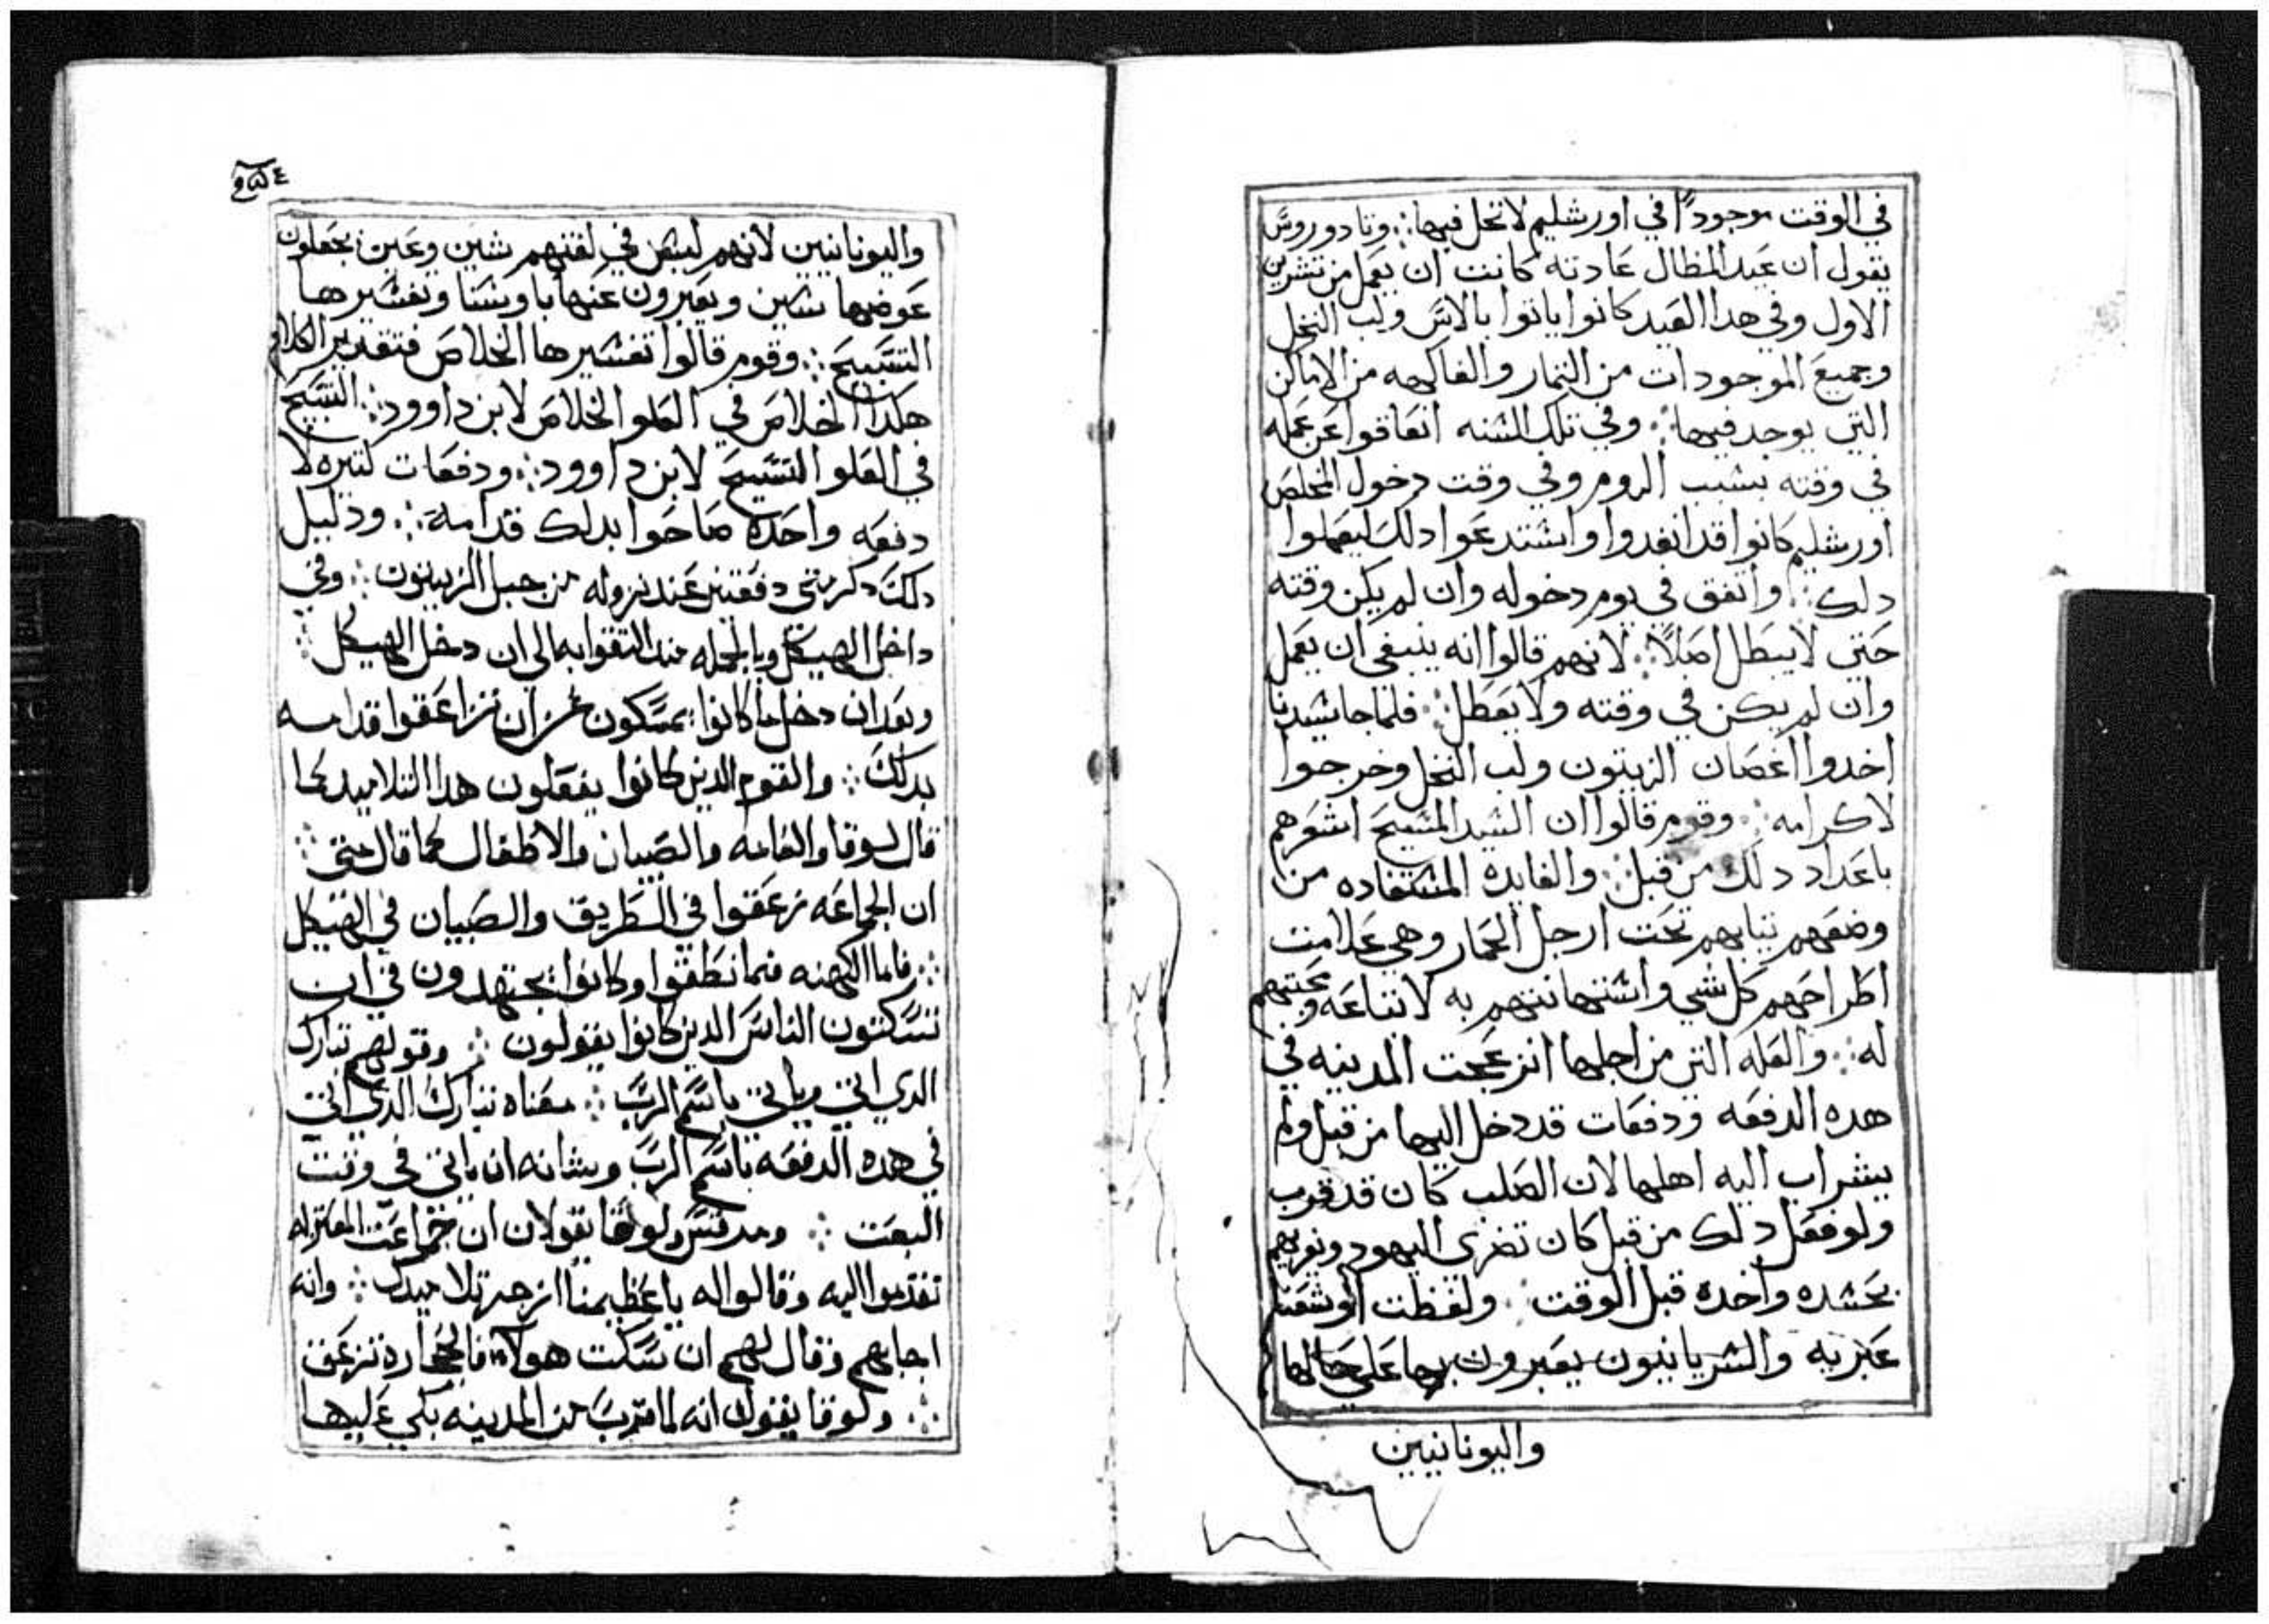 في الوقت موجوداً في اورشليم لا تحل فيها ؞ وتادوروس
يقول ان عيد المظال عادته كانت ان يعمل من تشرين
الاول وفي هدا العيد كانوا ياتوا بالاس ولب النخل
وجميع الموجودات من التمار والفاكهه من الاماكن
التي يوجد فيها ؞ وفي تلك السنه اتعاقوا عن عمله
في وقته بسبب الروم وفي وقت دخول المخلص
اورشليم كانوا قد انفدوا واستدعوا دلك ليعملوا
دلك ؞ واتفق في يوم دخوله وان لم يكن وقته
حتي لا يبطل اصلاً ؞ لانهم قالوا انه ينبغي ان يعمل
وان لم يكن في وقته ولا يعطل ؞ فلما جا سيدنا
اخدوا اغصان الزيتون ولب النخل وخرجوا
لاكرامه ؞ وقوم قالوا ان السيد المسيح اشعرهم
باعداد دلك من قبل ؞ والفايده المستفاده من
وضعهم تيابهم تحت ارجل الحمار وهي علامت
اطراحهم كل شي واستهانتهم به لاتباعه ومحبتهم
له ؞ والعله التي من اجلها انزعجت المدينه في
هده الدفعه ودفعات قد دخل اليها من قبل ولم
يشراب اليه اهلها لان الصلب كان قد قرب
ولو فعل دلك من قبل كان تضرى اليهود وتوربهم
بحسده واخده قبل الوقت ؞ ولفظت اوشعنا
عبريه والسريانيون يعبرون بها علي حالها
واليونانيين
٤
واليونانيين لانهم ليس في لغتهم شين وعين يجعلون
عوضها سين ويعبرون عنها باوسنا وتفسيرها
التسبيح ؞ وقوم قالوا تفسيرها الخلاص فتقدير الكلام
هكدا الخلاص في العلو الخلاص لابن داوود ؞ التسبيح
في العلو التسبيح لابن داوود ؞ ودفعات كتيره لا
دفعه واحده صاحوا بدلك قدامه ؞ ودليل
دلك دكر متي دفعتين عند نزوله من جبل الزيتون ؞ وفي
داخل الهيكل وبالجمله مند التقوا به الي ان دخل الهيكل ؞
وبعد ان دخل ما كانوا يمسكون عن ان يزاعقوا قدامه
بدلك ؞ والقوم الدين كانوا يفعلون هدا التلاميد كما
قال لوقا والعامه والصبيان والاطفال كما قال متي ؞
ان الجماعه زعقوا في الطريق والصبيان في الهيكل
؞ فاما الكهنه فما نطقوا وكانوا يجتهدون في ان
يسكتون الناس الدين كانوا يقولون ؞ وقولهم تبارك
الدي اتي وياتي باسم الرب ؞ معناه تبارك الدي اتي
في هده الدفعه باسم الرب وبشانه ان ياتي في وقت
البعت ؞ ومرقس ولوقا يقولان ان جماعت المعتزله
تقدموا اليه وقالوا له يا عظيمنا ازجر تلاميدك ؞ وانه
اجابهم وقال لهم ان سكت هولا فالحجاره تزعق
؞ ولوقا يقول انه لما قرب من المدينه بكي عليها